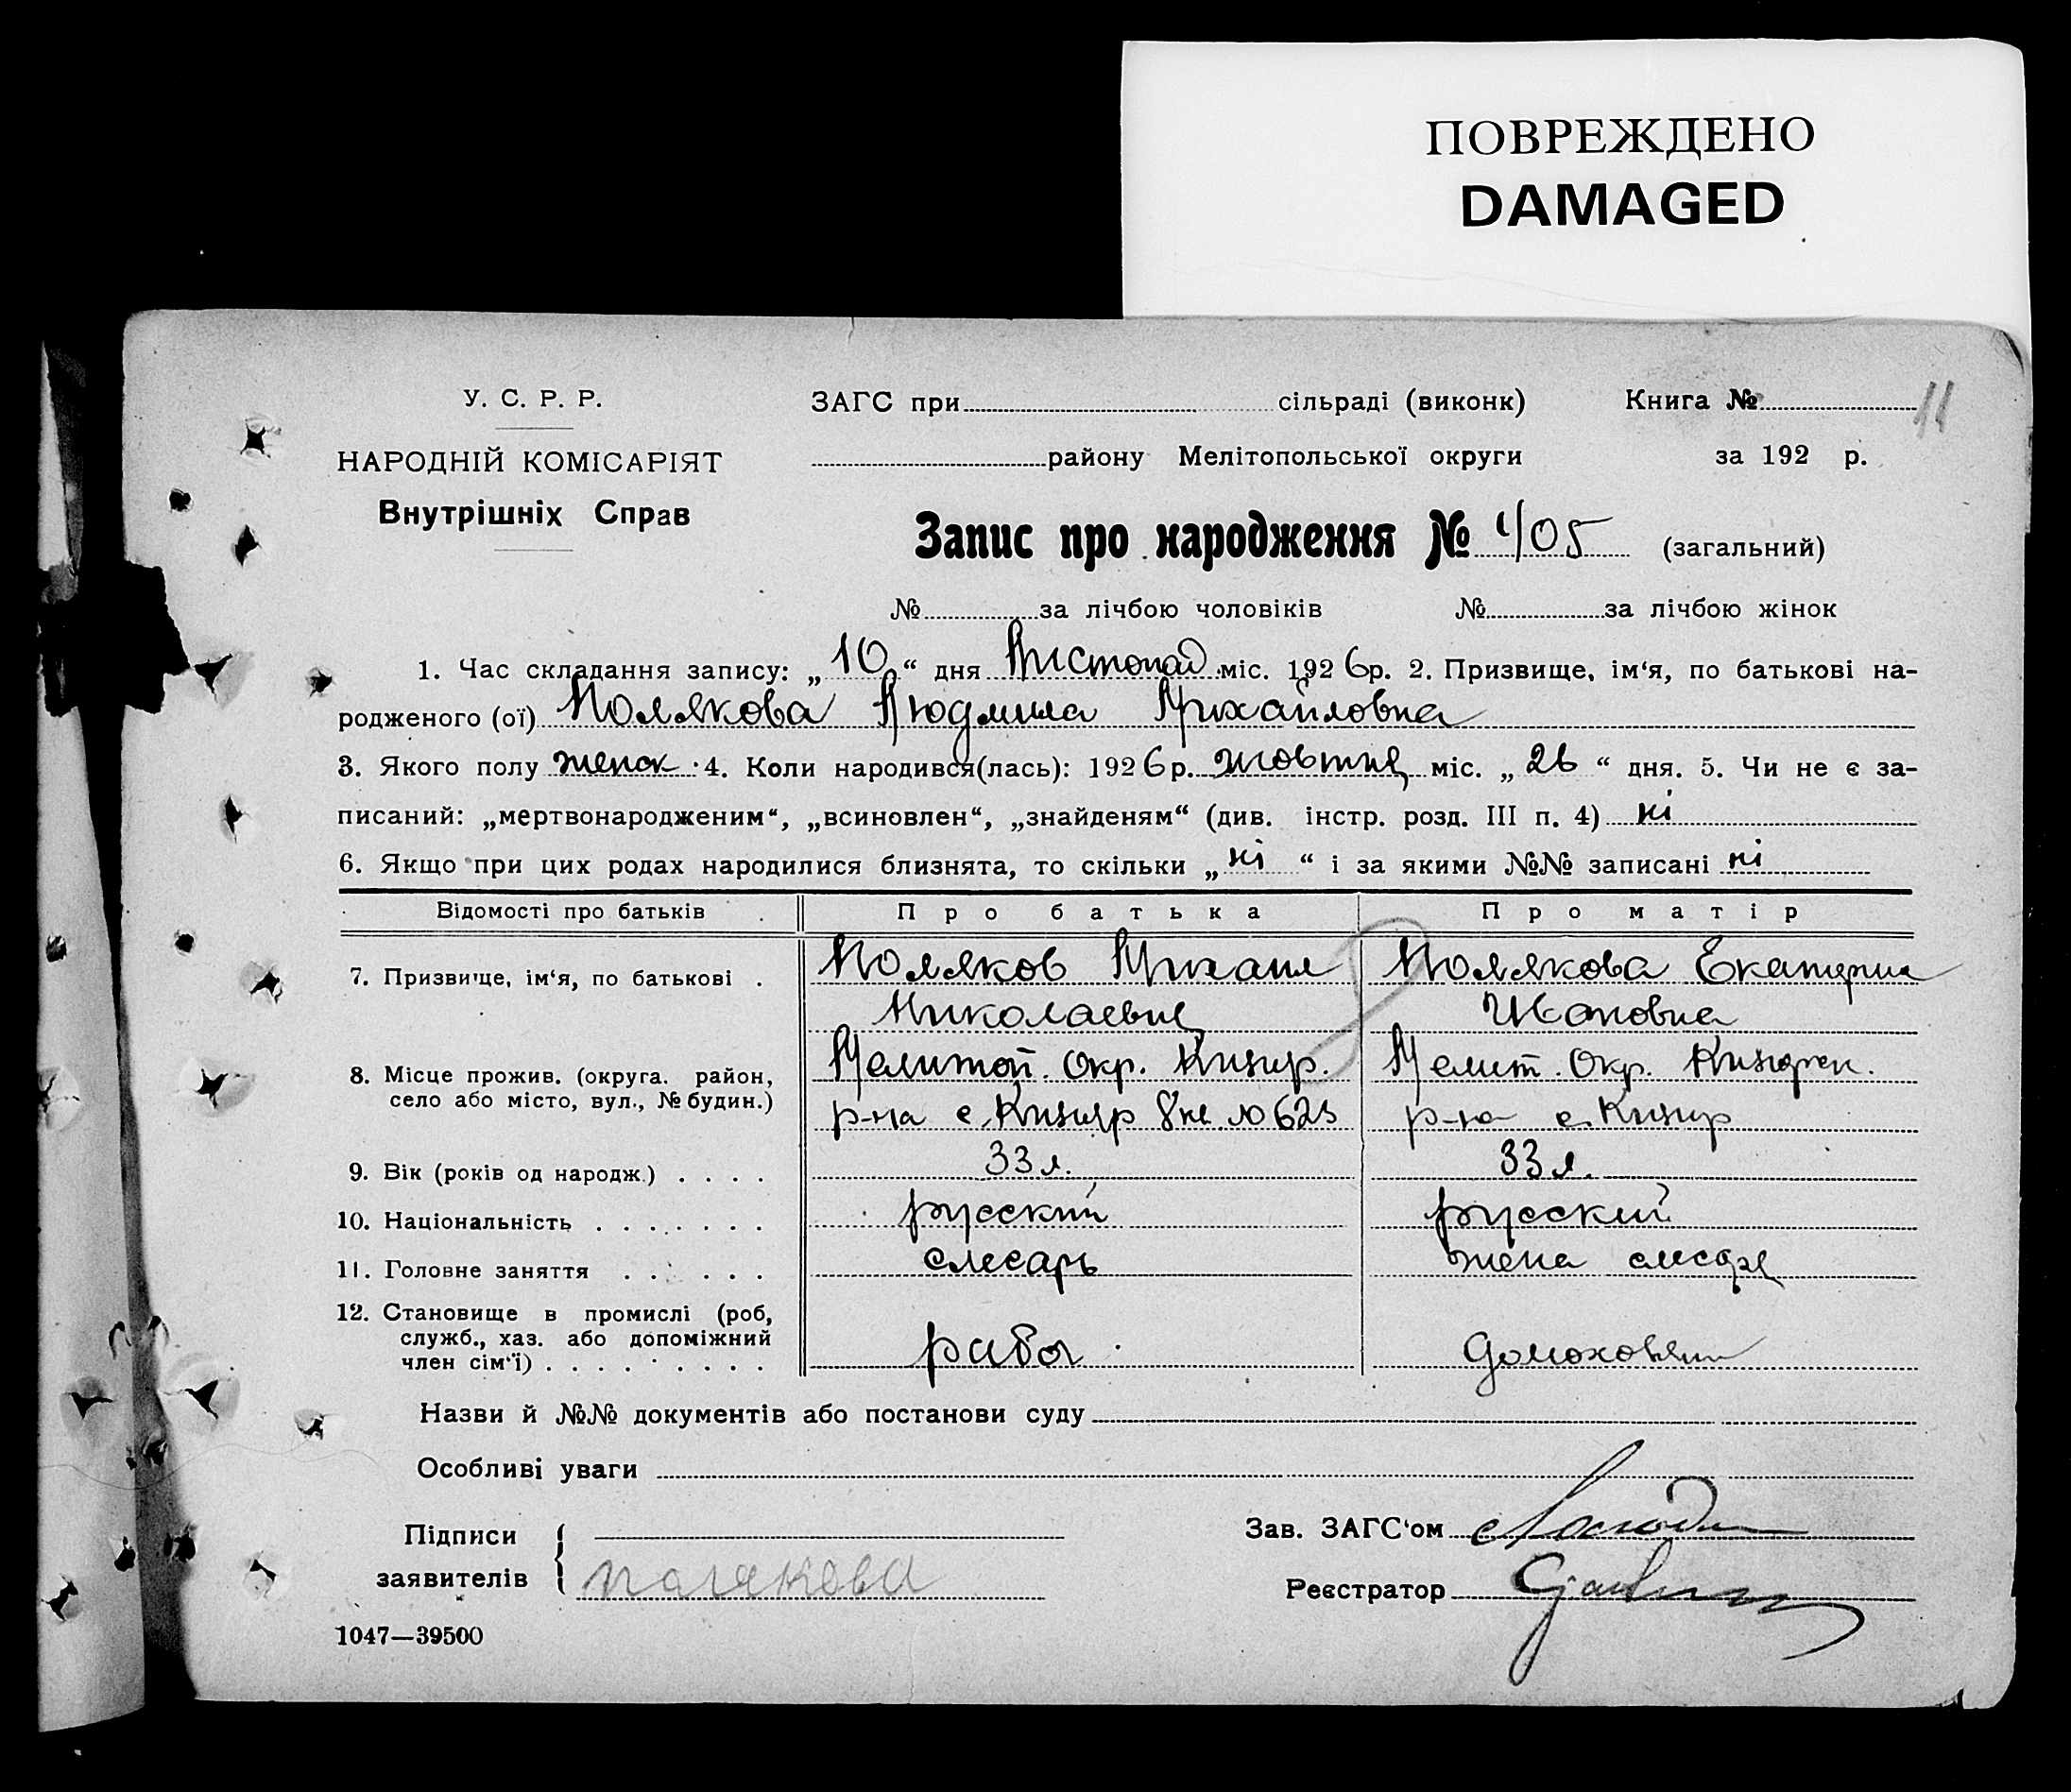 ПОВРЕЖДЕНО
DAMAGED
У. С. Р. Р.
НАРОДНІЙ КОМІСАРІЯТ
Внутрішніх Справ
ЗАГС при сільраді (виконк) Книга № 11
району Мелітопольської округи за 192 р.
Запис про народження № 405 (загальний)
№ за лічбою чоловіків № за лічбою жінок
1. Час складання запису: „10“ дня Листопад міс. 1926р. 2. Призвище, ім‘я, по батькові на-
родженого (ої) Полякова Людмила Михайловна
3. Якого полу женск. 4. Коли народився(лась): 1926р. жовтня міс. „26“ дня. 5. Чи не є за-
писаний: „мертвонародженим“, „всиновлен“, „знайденям“ (див. інстр. розд. III п. 4) ні
6. Якщо при цих родах народилися близнята, то скільки „ні“ і за якими №№ записані ні
Відомості про батьків Про батька Про матір
7. Призвище, ім‘я, по батькові . Поляков Михаил Полякова Екатерина
Николаевич Ивановна
8. Місце прожив. (округа. район, Мелитоп. Окр. Кизир. Мелит. Окр.
село або місто, вул., № будин.) р-на с. Кизияр р-на с. Кизир
9. Вік (років од народж.) . . . . 33 л. 33 л.
10. Національність . . . . . . . русский русский
11. Головне заняття . . . . . . слесарь жена слесаря
12. Становище в промислі (роб,
служб., хаз. або допоміжний
член сім‘ї) . . . . . . . . . рабоч.
Назви й №№ документів або постанови суду
Особливі уваги
Підписи
заявителів полякова
Зав. ЗАГС‘ом
Реєстратор
1047—39500